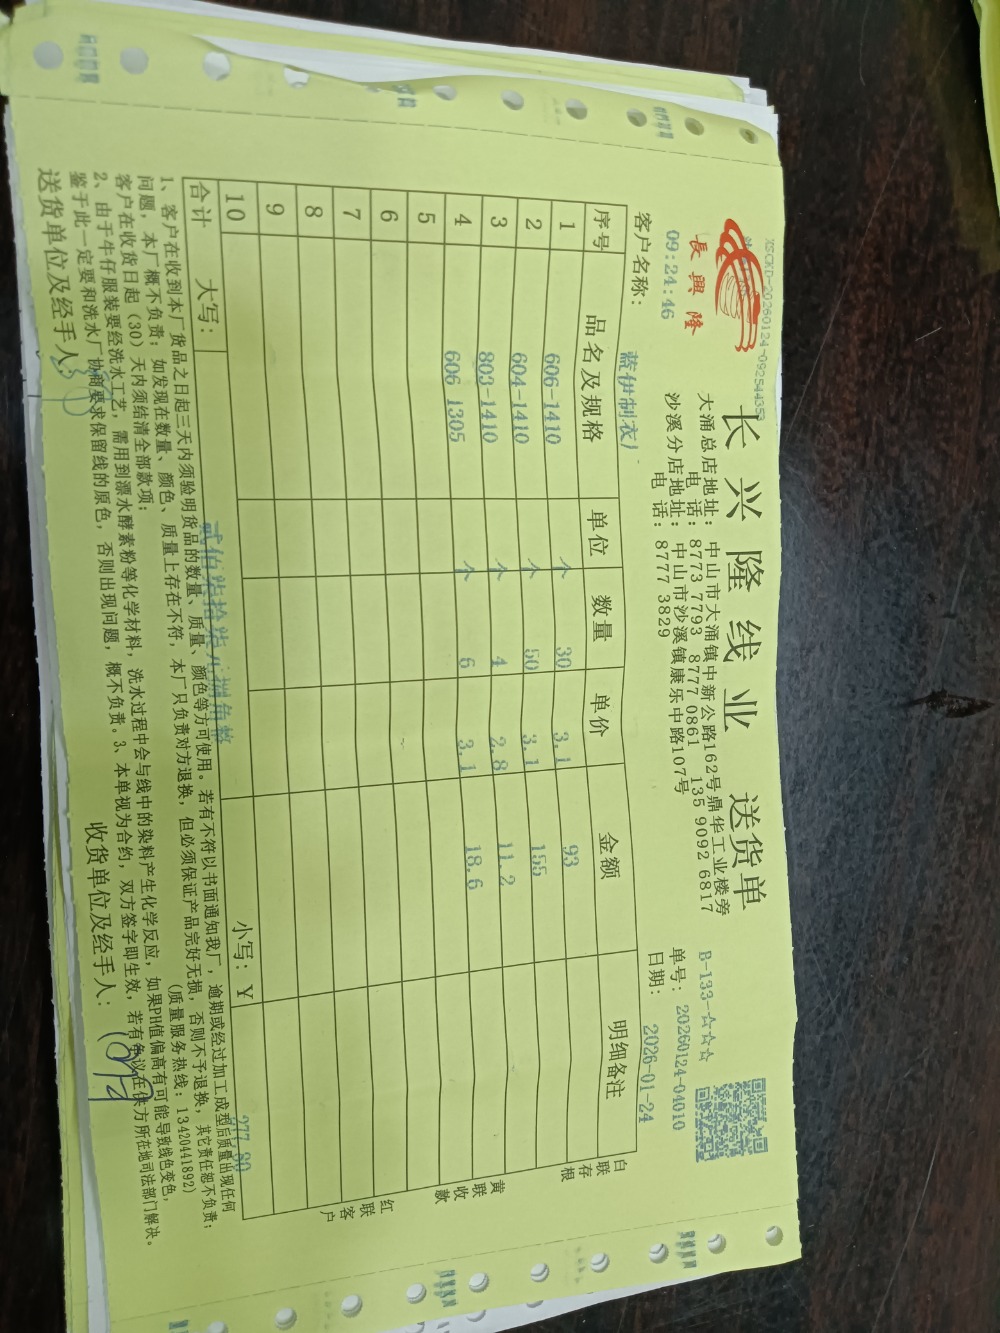 XSCKD-20260124-092544353
長興隆
长兴隆线业 送货单
B-133-☆☆☆
大涌总店地址: 中山市大涌镇中新公路162号鼎华工业楼旁
电 话: 8773 7793 8777 0861 135 9092 6817
沙溪分店地址: 中山市沙溪镇康乐中路107号
电 话: 8777 3829
单号: 20260124-04010
09:24:46
日期: 2026-01-24
客户名称: 蓝伊制衣厂
序号 品名及规格 单位 数量 单价 金额 明细备注
1 606-1410 个 30 3.1 93
2 604-1410 个 50 3.1 155
3 803-1410 个 4 2.8 11.2
4 606 1305 个 6 3.1 18.6
5
6
7
8
9
10
合计 大写: 贰佰柒拾柒元捌角整 小写: Y 277.80
白联存根
黄联收款
红联客户
1、客户在收到本厂货品之日起三天内须验明货品的数量、质量、颜色等方可使用。若有不符以书面通知我厂,逾期或经过加工成型后质量出现任何
问题,本厂概不负责;如发现在数量、颜色、质量上存在不符,本厂只负责对方退换,但必须保证产品完好无损,否则不予退换,其它责任恕不负责;
客户在收货日起(30)天内须结清全部款项; (质量服务热线:13420441892)
2、由于牛仔服装要经洗水工艺,需用到漂水酵素粉等化学材料,洗水过程中会与线中的染料产生化学反应,如果PH值偏高有可能导致线色变色,
鉴于此一定要和洗水厂协商要求保留线的原色,否则出现问题,概不负责。3、本单视为合约,双方签字即生效,若有争议在供方所在地司法部门解决。
送货单位及经手人: 收货单位及经手人: